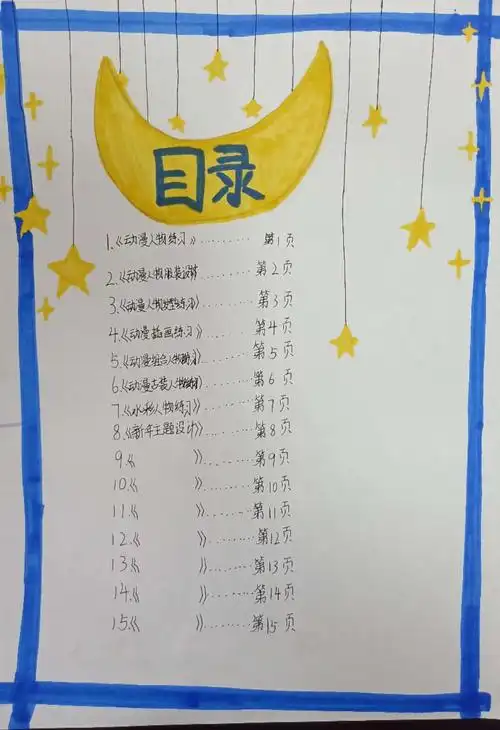 目录
1.《动漫人物练习》………第1页
2.《动漫人物服装设计》………第2页
3.《动漫人物发型练习》………第3页
4.《动漫插画练习》………第4页
5.《动漫组合人物练习》………第5页
6.《动漫古装人物练习》………第6页
7.《水彩人物练习》………第7页
8.《新年主题设计》………第8页
9.《 》………第9页
10.《 》………第10页
11.《 》………第11页
12.《 》………第12页
13.《 》………第13页
14.《 》………第14页
15.《 》………第15页